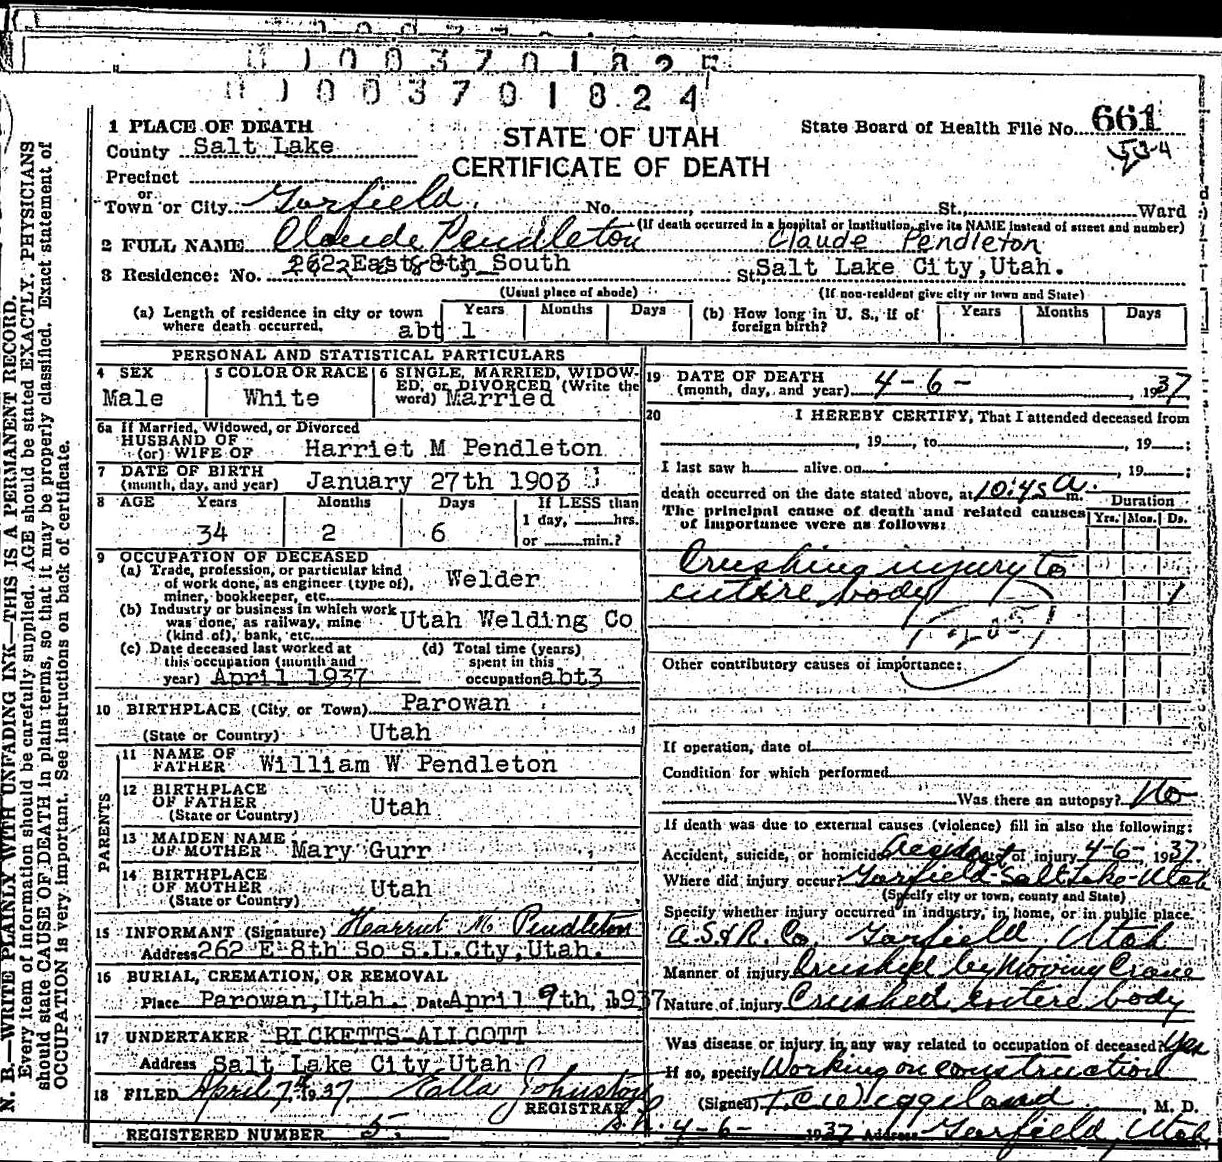 0 1 0 0 3 7 0 1 8 2 5
0 1 0 0 3 7 0 1 8 2 4
N. B.—WRITE PLAINLY WITH UNFADING INK—THIS IS A PERMANENT RECORD.
Every item of information should be carefully supplied. AGE should be stated EXACTLY. PHYSICIANS
should state CAUSE OF DEATH in plain terms, so that it may be properly classified. Exact statement of
OCCUPATION is very important. See instructions on back of certificate.
STATE OF UTAH
CERTIFICATE OF DEATH
State Board of Health File No. 661
1 PLACE OF DEATH
County Salt Lake
Precinct
or
Town or City Garfield No. St., Ward
(If death occurred in a hospital or institution, give its NAME instead of street and number)
2 FULL NAME Claude Pendleton Claude Pendleton
3 Residence: No. 262 East 8th South St. Salt Lake City, Utah.
(Usual place of abode) (If non-resident give city or town and State)
(a) Length of residence in city or town where death occurred. abt 1 Years Months Days
(b) How long in U. S., if of foreign birth? Years Months Days
PERSONAL AND STATISTICAL PARTICULARS
4 SEX Male
5 COLOR OR RACE White
6 SINGLE, MARRIED, WIDOWED, or DIVORCED (Write the word) Married
6a If Married, Widowed, or Divorced
HUSBAND OF
(or) WIFE OF Harriet M Pendleton
7 DATE OF BIRTH
(month, day, and year) January 27th 1903
8 AGE Years Months Days If LESS than
34 2 6 1 day, hrs.
or min.?
9 OCCUPATION OF DECEASED
(a) Trade, profession, or particular kind of work done, as engineer (type of), miner, bookkeeper, etc. Welder
(b) Industry or business in which work was done, as railway, mine (kind of), bank, etc. Utah Welding Co
(c) Date deceased last worked at this occupation (month and year) April 1937
(d) Total time (years) spent in this occupation abt3
10 BIRTHPLACE (City or Town) Parowan
(State or Country) Utah
PARENTS
11 NAME OF FATHER William W Pendleton
12 BIRTHPLACE OF FATHER
(State or Country) Utah
13 MAIDEN NAME OF MOTHER Mary Gurr
14 BIRTHPLACE OF MOTHER
(State or Country) Utah
15 INFORMANT (Signature) Harriet M. Pendleton
Address 262 E 8th So S.L.Cty, Utah.
16 BURIAL, CREMATION, OR REMOVAL
Place Parowan, Utah. Date April 9th, 1937
17 UNDERTAKER RICKETTS-ALLCOTT
Address Salt Lake City Utah
18 FILED April 7th 1937 Ella Johnston
REGISTRAR
REGISTERED NUMBER 5.
19 DATE OF DEATH
(month, day, and year) 4-6-, 1937
20 I HEREBY CERTIFY, That I attended deceased from
, 19 , to , 19 ;
I last saw h alive on , 19 ;
death occurred on the date stated above, at 10:45 a. m.
The principal cause of death and related causes of importance were as follows:
Duration
Yrs. Mos. Ds.
Crushing injury to
entire body 1
Other contributory causes of importance:
If operation, date of
Condition for which performed
Was there an autopsy? No
If death was due to external causes (violence) fill in also the following:
Accident, suicide, or homicide Accident of injury 4-6- 1937
Where did injury occur? Garfield Salt Lake Utah
(Specify city or town, county and State)
Specify whether injury occurred in industry, in home, or in public place.
A.S.&R. Co. Garfield, Utah
Manner of injury Crushed by Moving Crane
Nature of injury Crushed entire body
Was disease or injury in any way related to occupation of deceased? Yes
If so, specify Working on construction
(Signed) , M. D.
4-6- 1937 Address Garfield, Utah